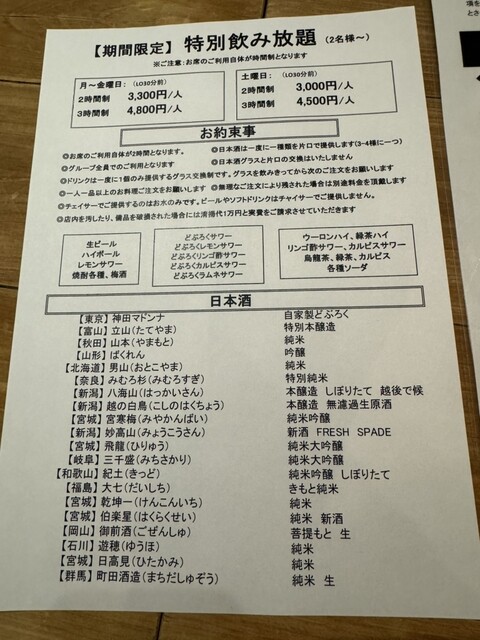 【期間限定】 特別飲み放題 (2名様～)
※ご注意:お席のご利用自体が時間制となります
月～金曜日: (LO30分前)
2時間制 3,300円/人
3時間制 4,800円/人
土曜日: (LO30分前)
2時間制 3,000円/人
3時間制 4,500円/人
お約束事
◎お席のご利用自体が2時間となります。 ◎日本酒は一度に一種類を片口で提供します(3-4様に一つ)
◎グループ全員でのご利用となります ◎日本酒グラスと片口の交換はいたしません
◎ドリンクは一度に1個のみ提供するグラス交換制です。グラスを飲みきってから次のご注文をお願いします
◎一人一品以上のお料理ご注文をお願いします ◎無理なご注文により残された場合は別途料金を頂戴します
◎チェイサーでご提供するのはお水のみです。ビールやソフトドリンクはチャイサーでご提供しません。
◎店内を汚したり、備品を破損された場合には清掃代1万円と実費をご請求させていただきます
生ビール
ハイボール
レモンサワー
焼酎各種、梅酒
どぶろくサワー
どぶろくレモンサワー
どぶろくリンゴ酢サワー
どぶろくカルピスサワー
どぶろくラムネサワー
ウーロンハイ、緑茶ハイ
リンゴ酢サワー、カルピスサワー
烏龍茶、緑茶、カルピス
各種ソーダ
日本酒
【東京】神田マドンナ 自家製どぶろく
【富山】立山(たてやま) 特別本醸造
【秋田】山本(やまもと) 純米
【山形】ばくれん 吟醸
【北海道】男山(おとこやま) 純米
【奈良】みむろ杉(みむろすぎ) 特別純米
【新潟】八海山(はっかいさん) 本醸造 しぼりたて 越後で候
【新潟】越の白鳥(こしのはくちょう) 本醸造 無濾過生原酒
【宮城】宮寒梅(みやかんばい) 純米吟醸
【新潟】妙高山(みょうこうさん) 新酒 FRESH SPADE
【宮城】飛龍(ひりゅう) 純米大吟醸
【岐阜】三千盛(みちさかり) 純米大吟醸
【和歌山】紀土(きっど) 純米吟醸 しぼりたて
【福島】大七(だいしち) きもと純米
【宮城】乾坤一(けんこんいち) 純米
【宮城】伯楽星(はくらくせい) 純米 新酒
【岡山】御前酒(ごぜんしゅ) 菩提もと 生
【石川】遊穂(ゆうほ) 純米
【宮城】日高見(ひたかみ) 純米
【群馬】町田酒造(まちだしゅぞう) 純米 生